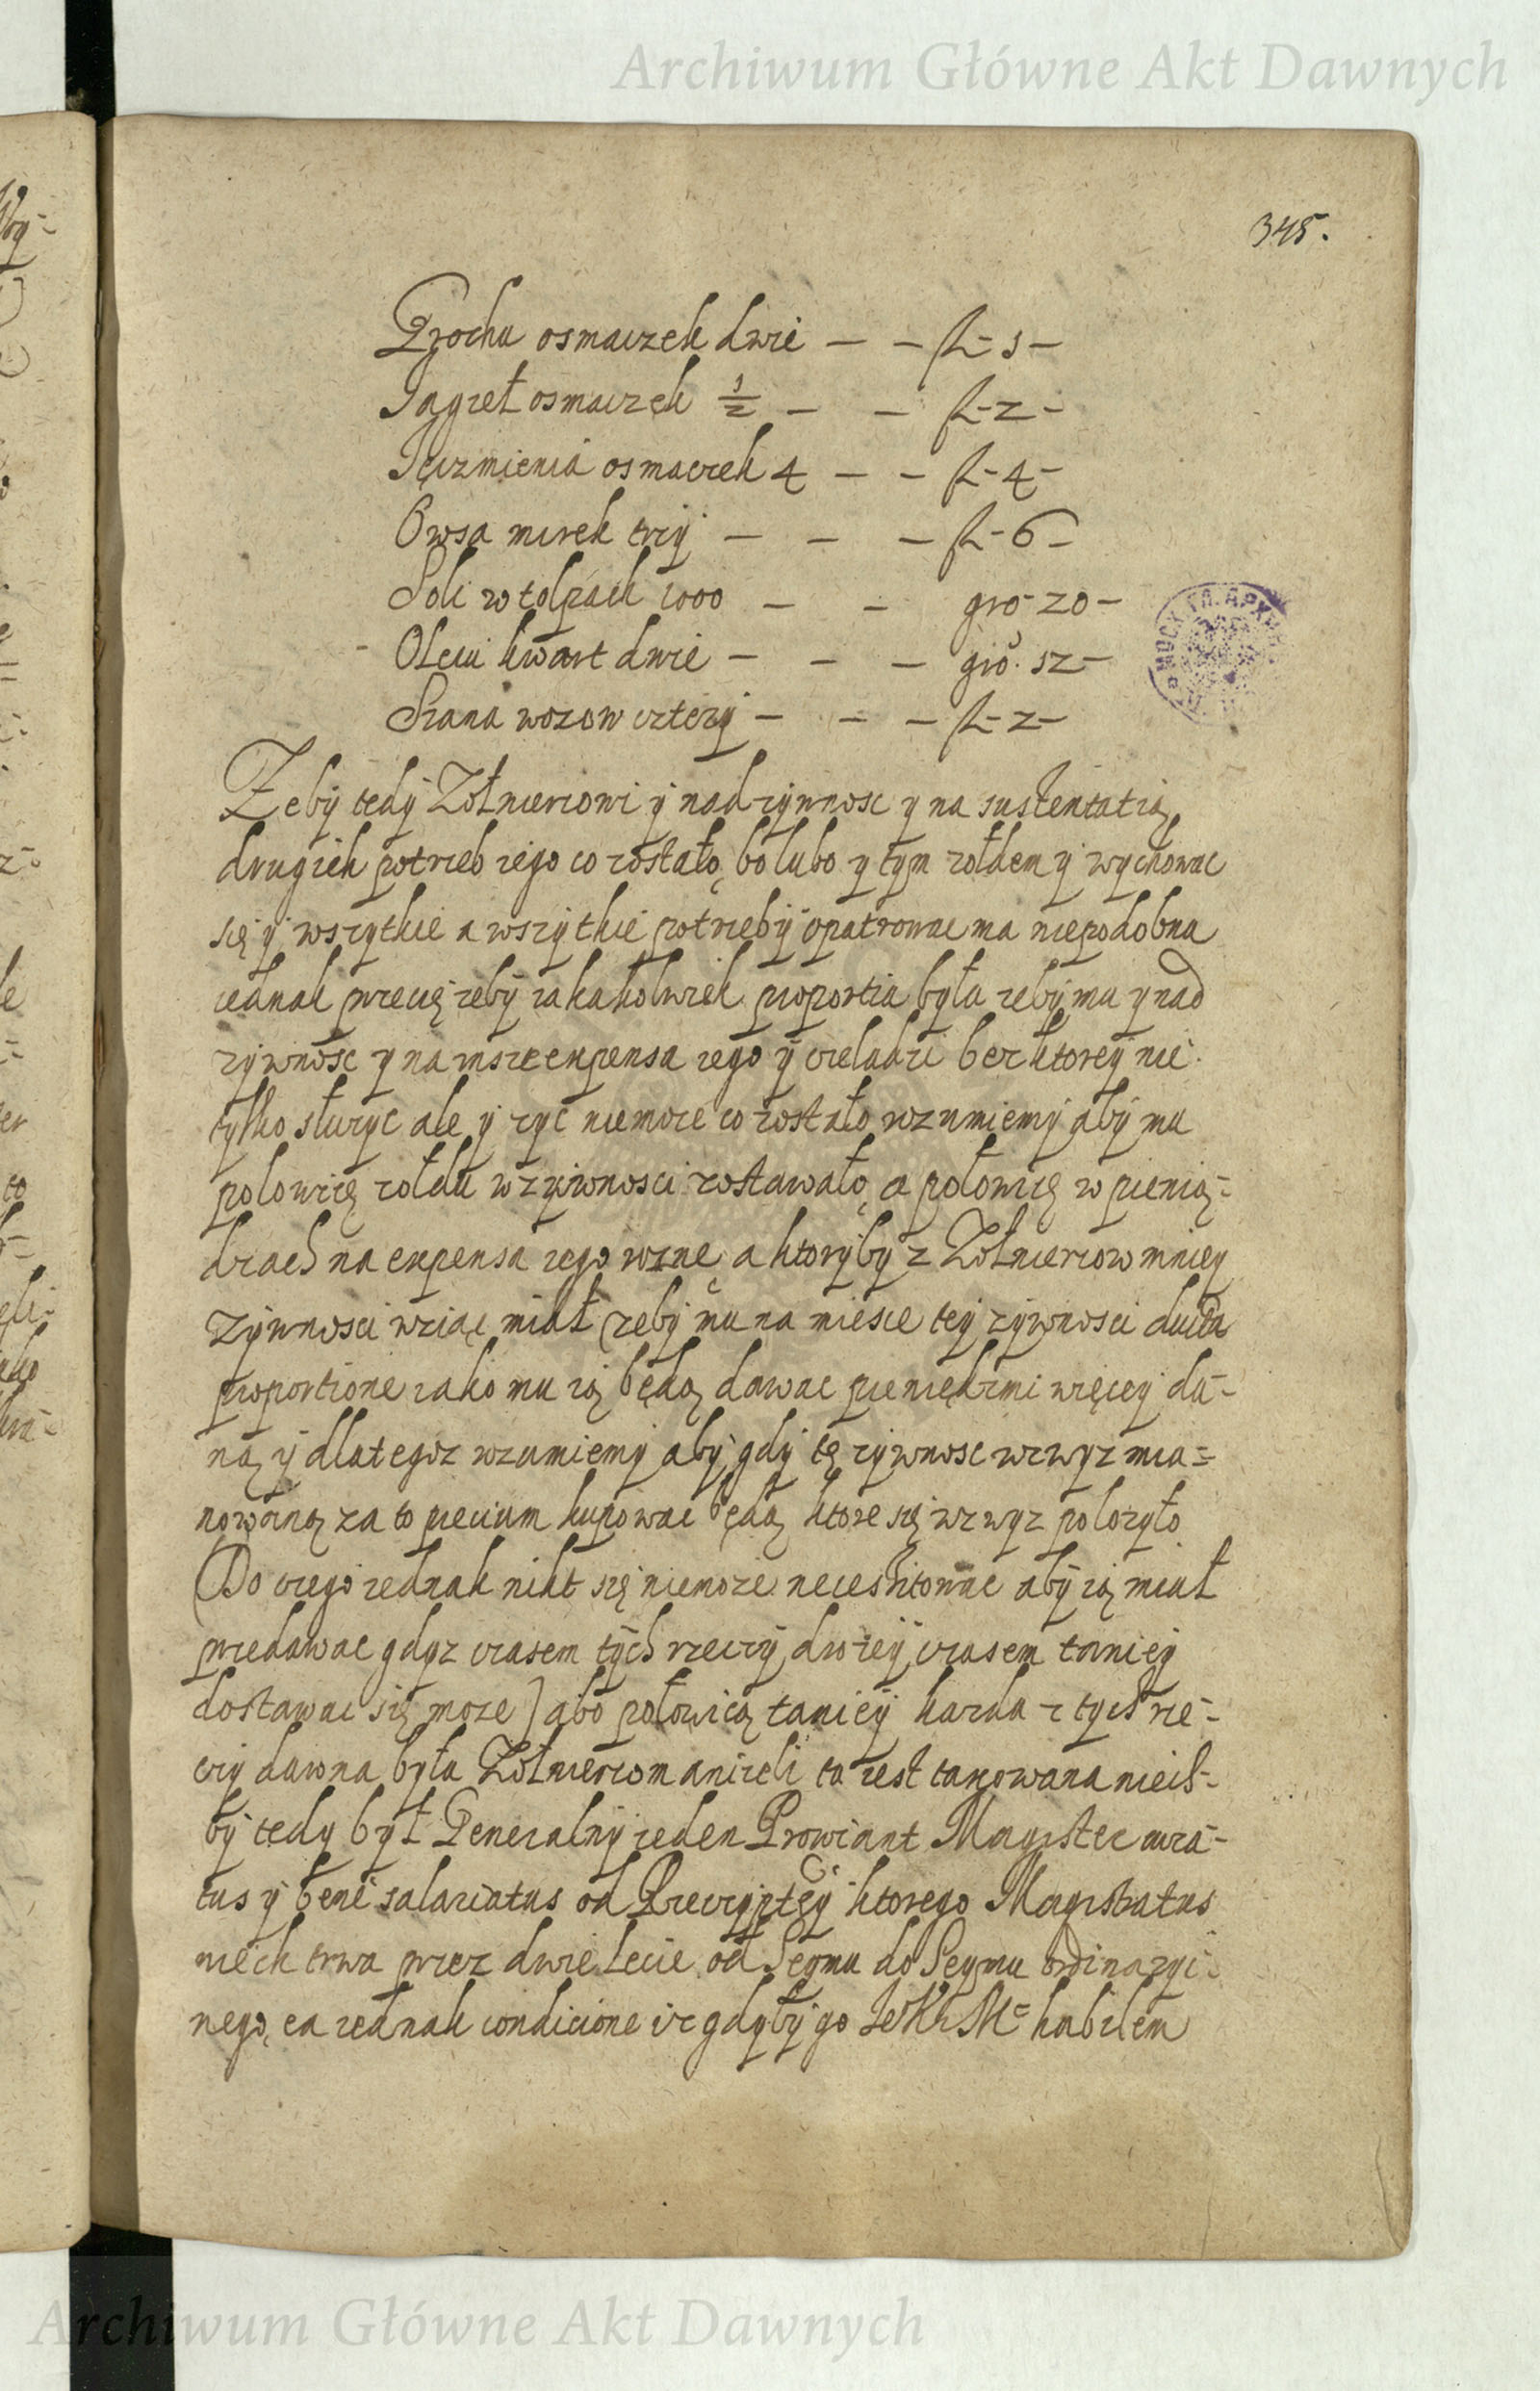 Archiwum Główne Akt Dawnych
345.
Grochu osmaczek dwie – – fl – 3 –
Jagieł osmaczek 1/2 – – fl – 2 –
Jęczmienia osmaczek 4 – – fl – 4 –
Owsa mirek trzy – – – fl – 6 –
Soli w tolpach 1000 – – gro 20 –
Oleiu kwart dwie – – – gro. 12 –
Siana wozow cztery – – – fl – 2 –
Zeby tedy Zołnierzowi y nad zywnosc y na sustentatią
drugich potrzeb iego co zostało, bo lubo y tym zołdem y wychowac
się y wszytkie a wszytkie potrzeby opatrowac ma niepodobna
iednak przecię zeby iakakolwiek proportia była zeby mu y nad
zywnosc y na insze expensa iego y czeladzi bez ktorey nie
tylko słuzyc ale y zyc niemoze co zostało rozumiemy aby mu
polowicę zołdu w zywnosci zostawało, a połowicę w pienią-
dzach na expensa iego rozne, a ktoryby z Zołnierzow mniey
Zywnosci wziąc miał (zeby mu na miesce tey zywnosci ducta
proportione iako mu ią będą dawac pieniędzmi więcey da-
no) y dlategoz rozumiemy aby gdy tę zywnosc wzwyz mia-
nowaną za to precium kupowac będą ktore się wzwyz polozyło
(Do czego iednak nikt się niemoze necessitowac aby ią miał
przedawac gdyz czasem tych rzeczy drozey czasem taniey
dostawac się moze) abo połowicą taniey kazda z tych rze-
czy dawna była Zołnierzom anizeli ta iest taxowana niech-
by tedy był Generalny ieden Prowiant Magister iura-
tus y bene salariatus od Rzeczyptey ktorego Magistratus
niech trwa przez dwie lecie od Seymu do Seymu ordinaryi-
nego, ea iednak condicione iz gdyby go JeKr Mc habilem
Archiwum Główne Akt Dawnych